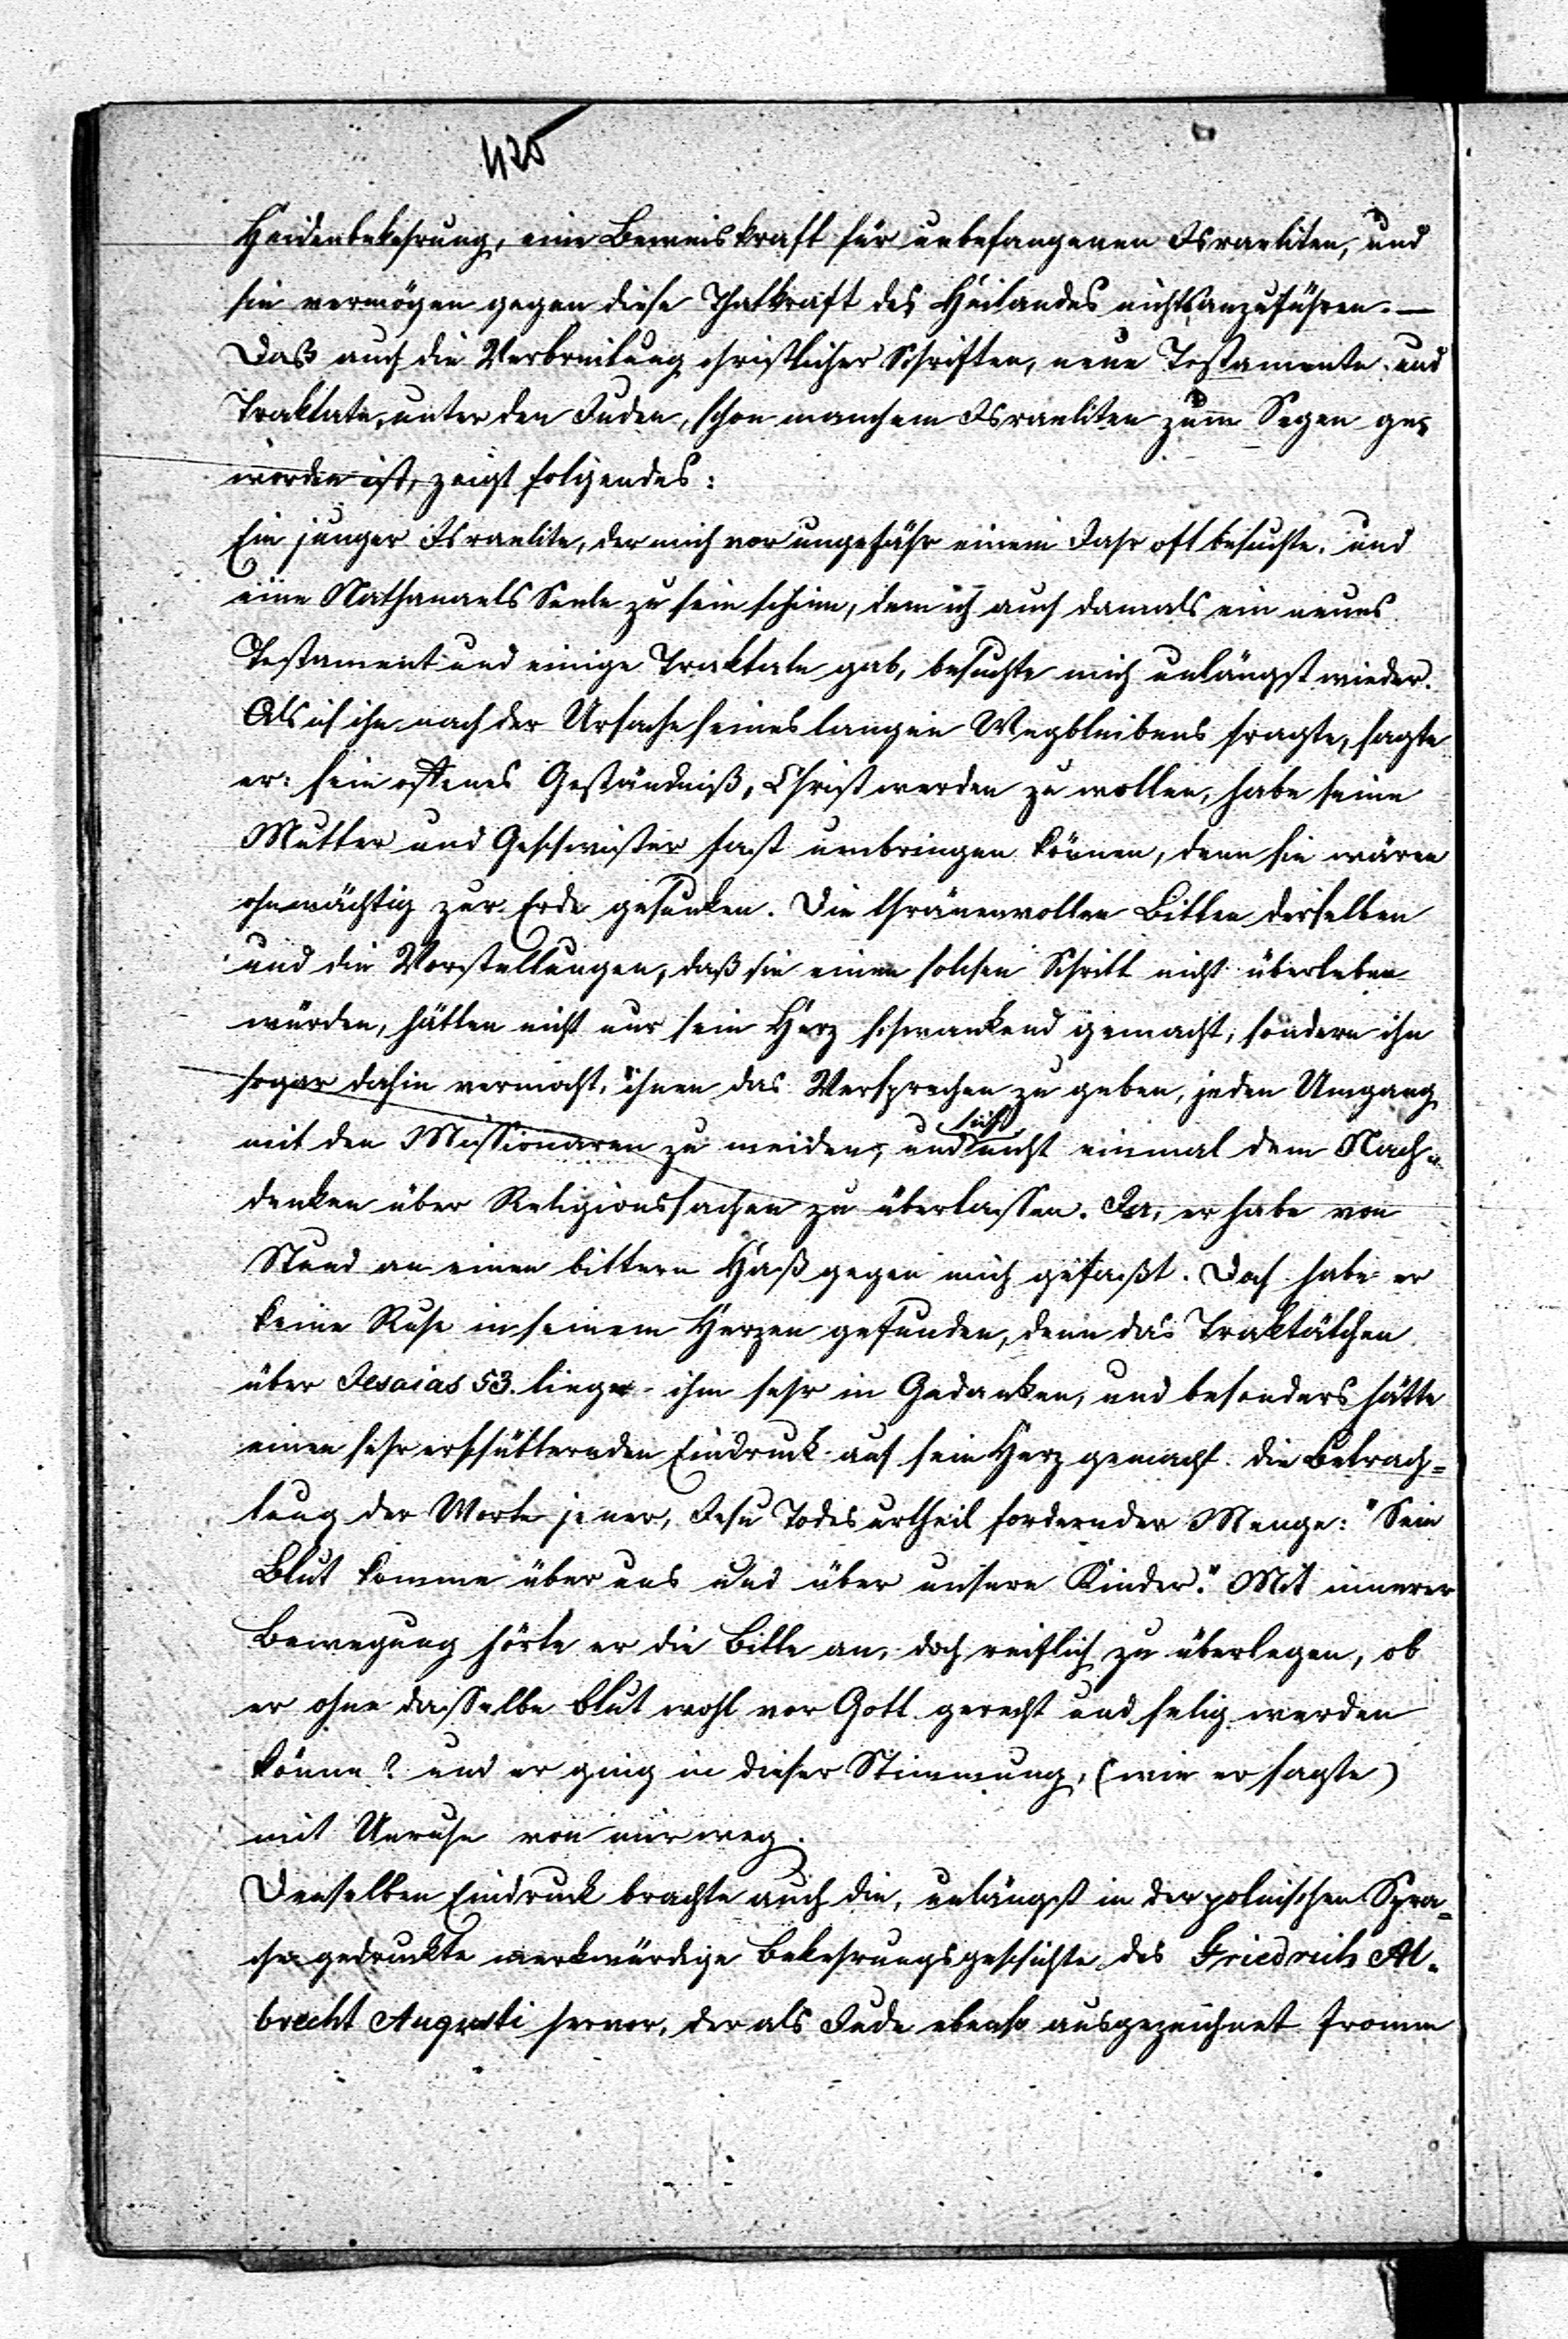 425
Heidenbekehrung, eine Beweiskraft für unbefangenen Israeliten, und
sie vermögen gegen diese Thatkraft des Heilandes nichts anzuführen. —
Daß auch die Verbreitung christlicher Schriften, neue Testamente und
Traktate, unter den Juden, schon manchem Israeliten zum Segen ge-
worden ist, zeigt folgendes:
Ein junger Israelite, der mich vor ungefähr einem Jahr oft besuchte, und
eine Nathanaels Seele zu sein schien, dem ich auch damals ein neues
Testament und einige Traktate gab, besuchte mich unlängst wieder.
Als ich ihn nach der Ursache seines langen Wegbleibens fragte, sagte
er: sein offenes Geständniß, Christ werden zu wollen, habe seine
Mutter und Geschwister fast umbringen können, denn sie wären
ohnmächtig zur Erde gesunken. Die thränenvollen Bitten derselben
und die Vorstellungen, daß sie einen solchen Schritt nicht überleben
würden, hätten nicht nur sein Herz schwankend gemacht, sondern ihn
sogar dahin vermocht, ihnen das Versprechen zu geben, jeden Umgang
mit den Missionaren zu meiden, und sich nicht einmal dem Nach-
denken über Religionssachen zu überlassen. Ja, er habe von
Stund an einen bittern Haß gegen mich gefaßt. Doch habe er
keine Ruhe in seinem Herzen gefunden, denn das Traktätchen
über Jesaias 53. liege ihm sehr in Gedanken, und besonders hätte
einen sehr erschütternden Eindruck auf sein Herz gemacht die Betrach-
tung der Worte jener, Jesu Todesurtheil fordernder Menge: "Sein
Blut komme über uns und über unsere Kinder." Mit innerer
Bewegung hörte er die Bitte an, doch reiflich zu überlegen, ob
er ohne dasselbe Blut wohl vor Gott gerecht und selig werden
könne? und er ging in dieser Stimmung, (wie er sagte)
mit Unruhe von mir weg.
Denselben Eindruck brachte auch die, unlängst in der polnischen Spra-
che gedruckte merkwürdige Bekehrungsgeschichte des Friedrich Al-
brecht Augusti hervor, der als Jude ebenso ausgezeichnet fromm